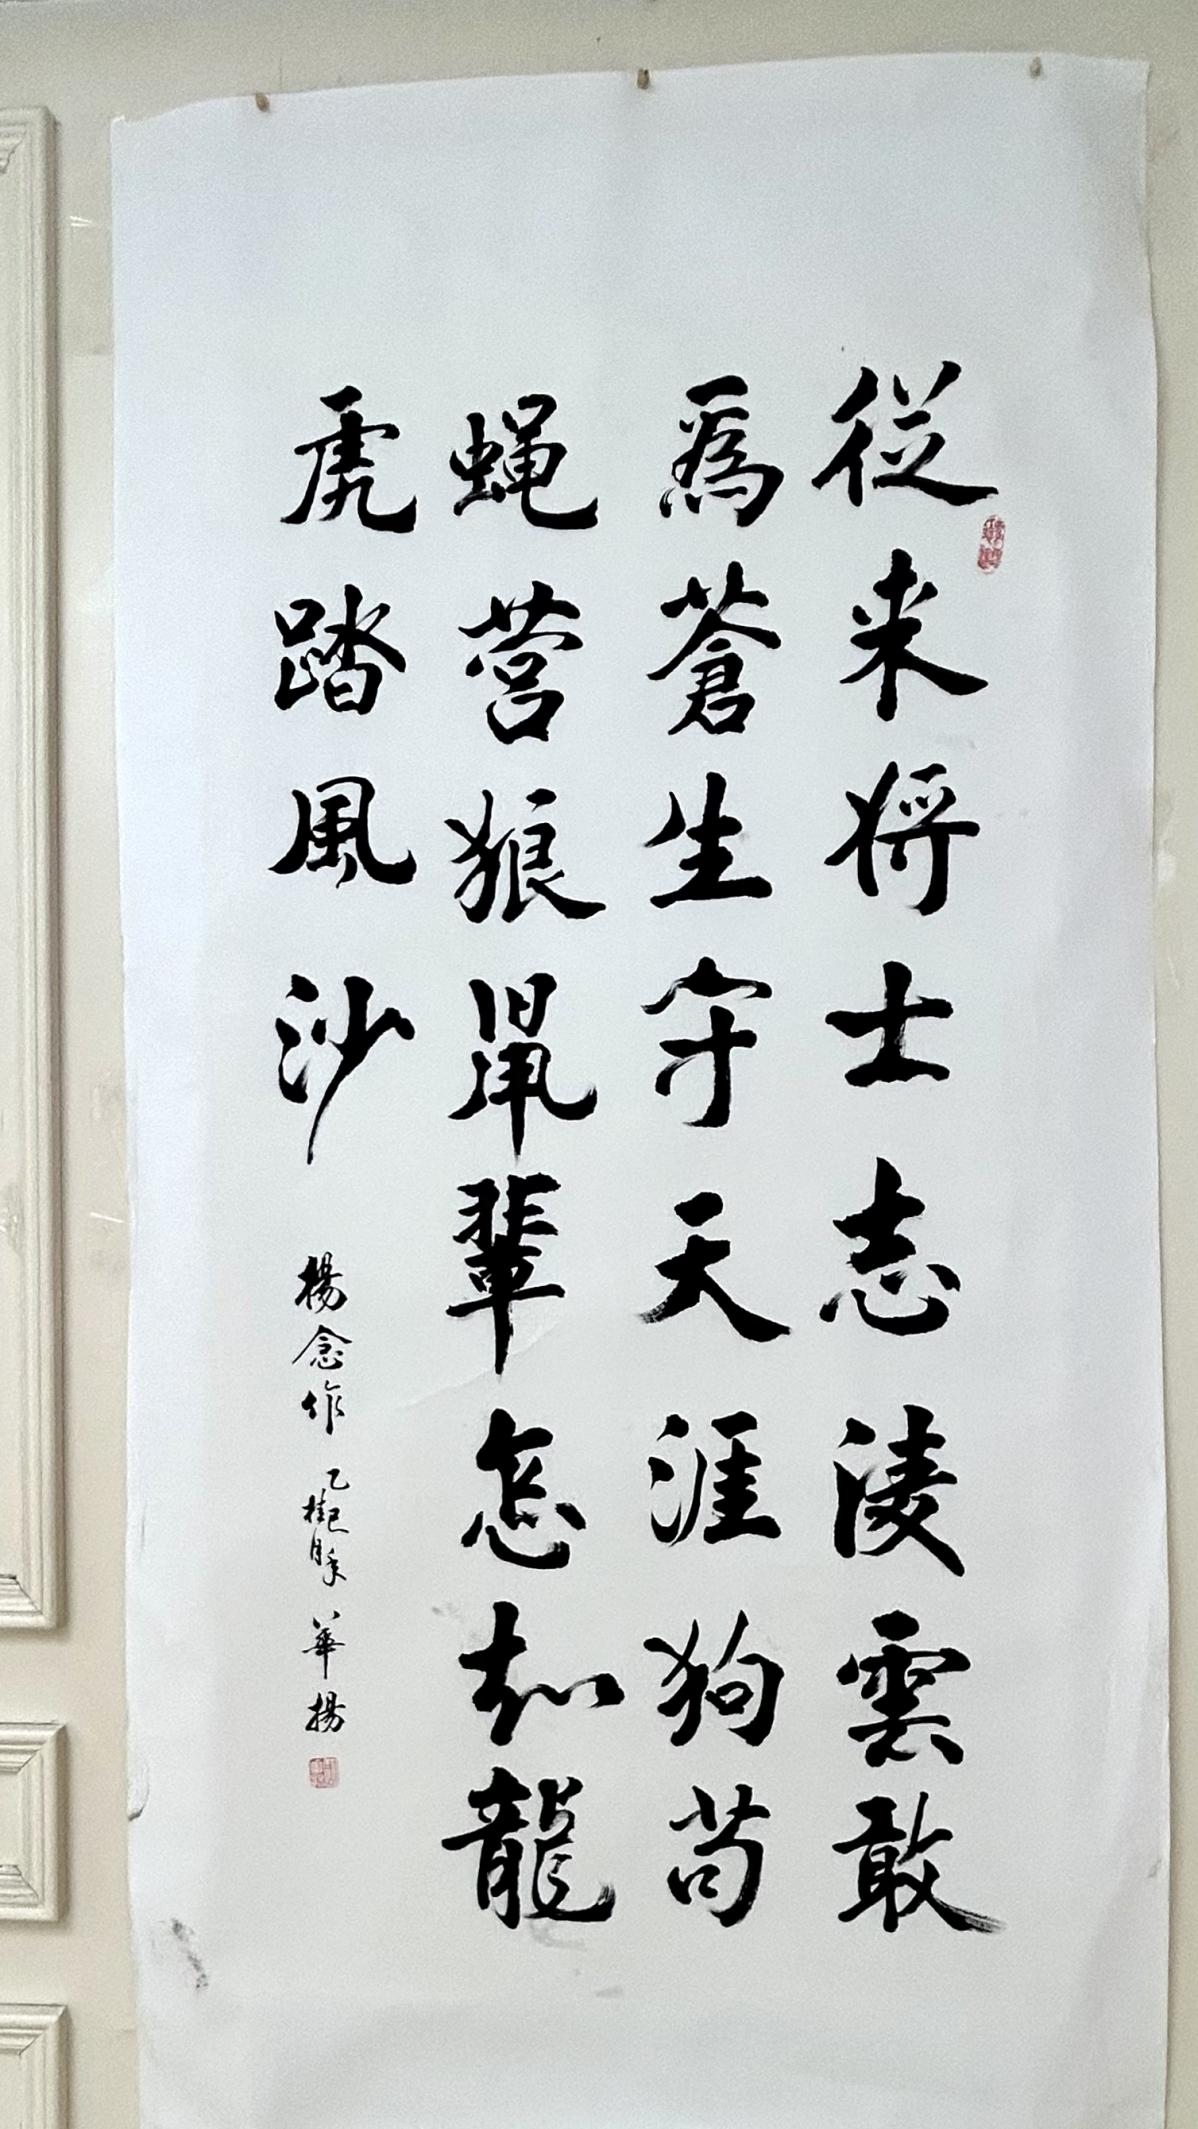 從来将士志凌雲敢
為蒼生守天涯狗苟
蝇营狼鼠輩怎知龍
虎踏風沙
楊念作 乙巳桂月 華揚